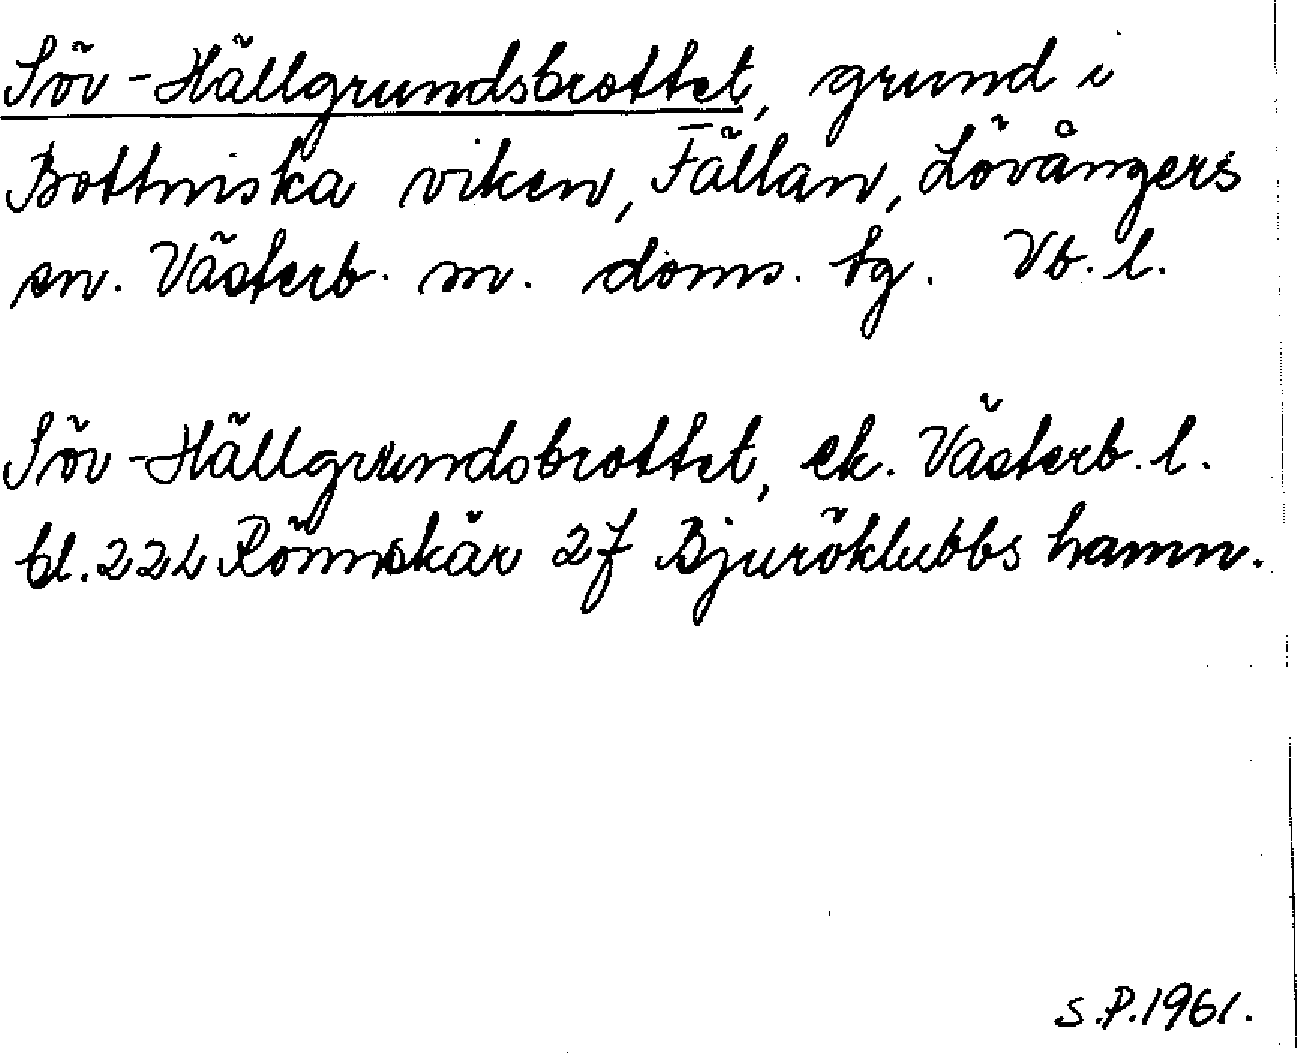 Söv-Hällgrundsbrottet, grund i
Bottniska viken, Fällan, Lövångers
sn. Västerb. m. doms. tg. Vb. l.
Söv-Hällgrundsbrottet, ek. Västerb. l.
bl. 22L Rönnskär 2f Bjuröklubbs hamn.
S.P. 1961.